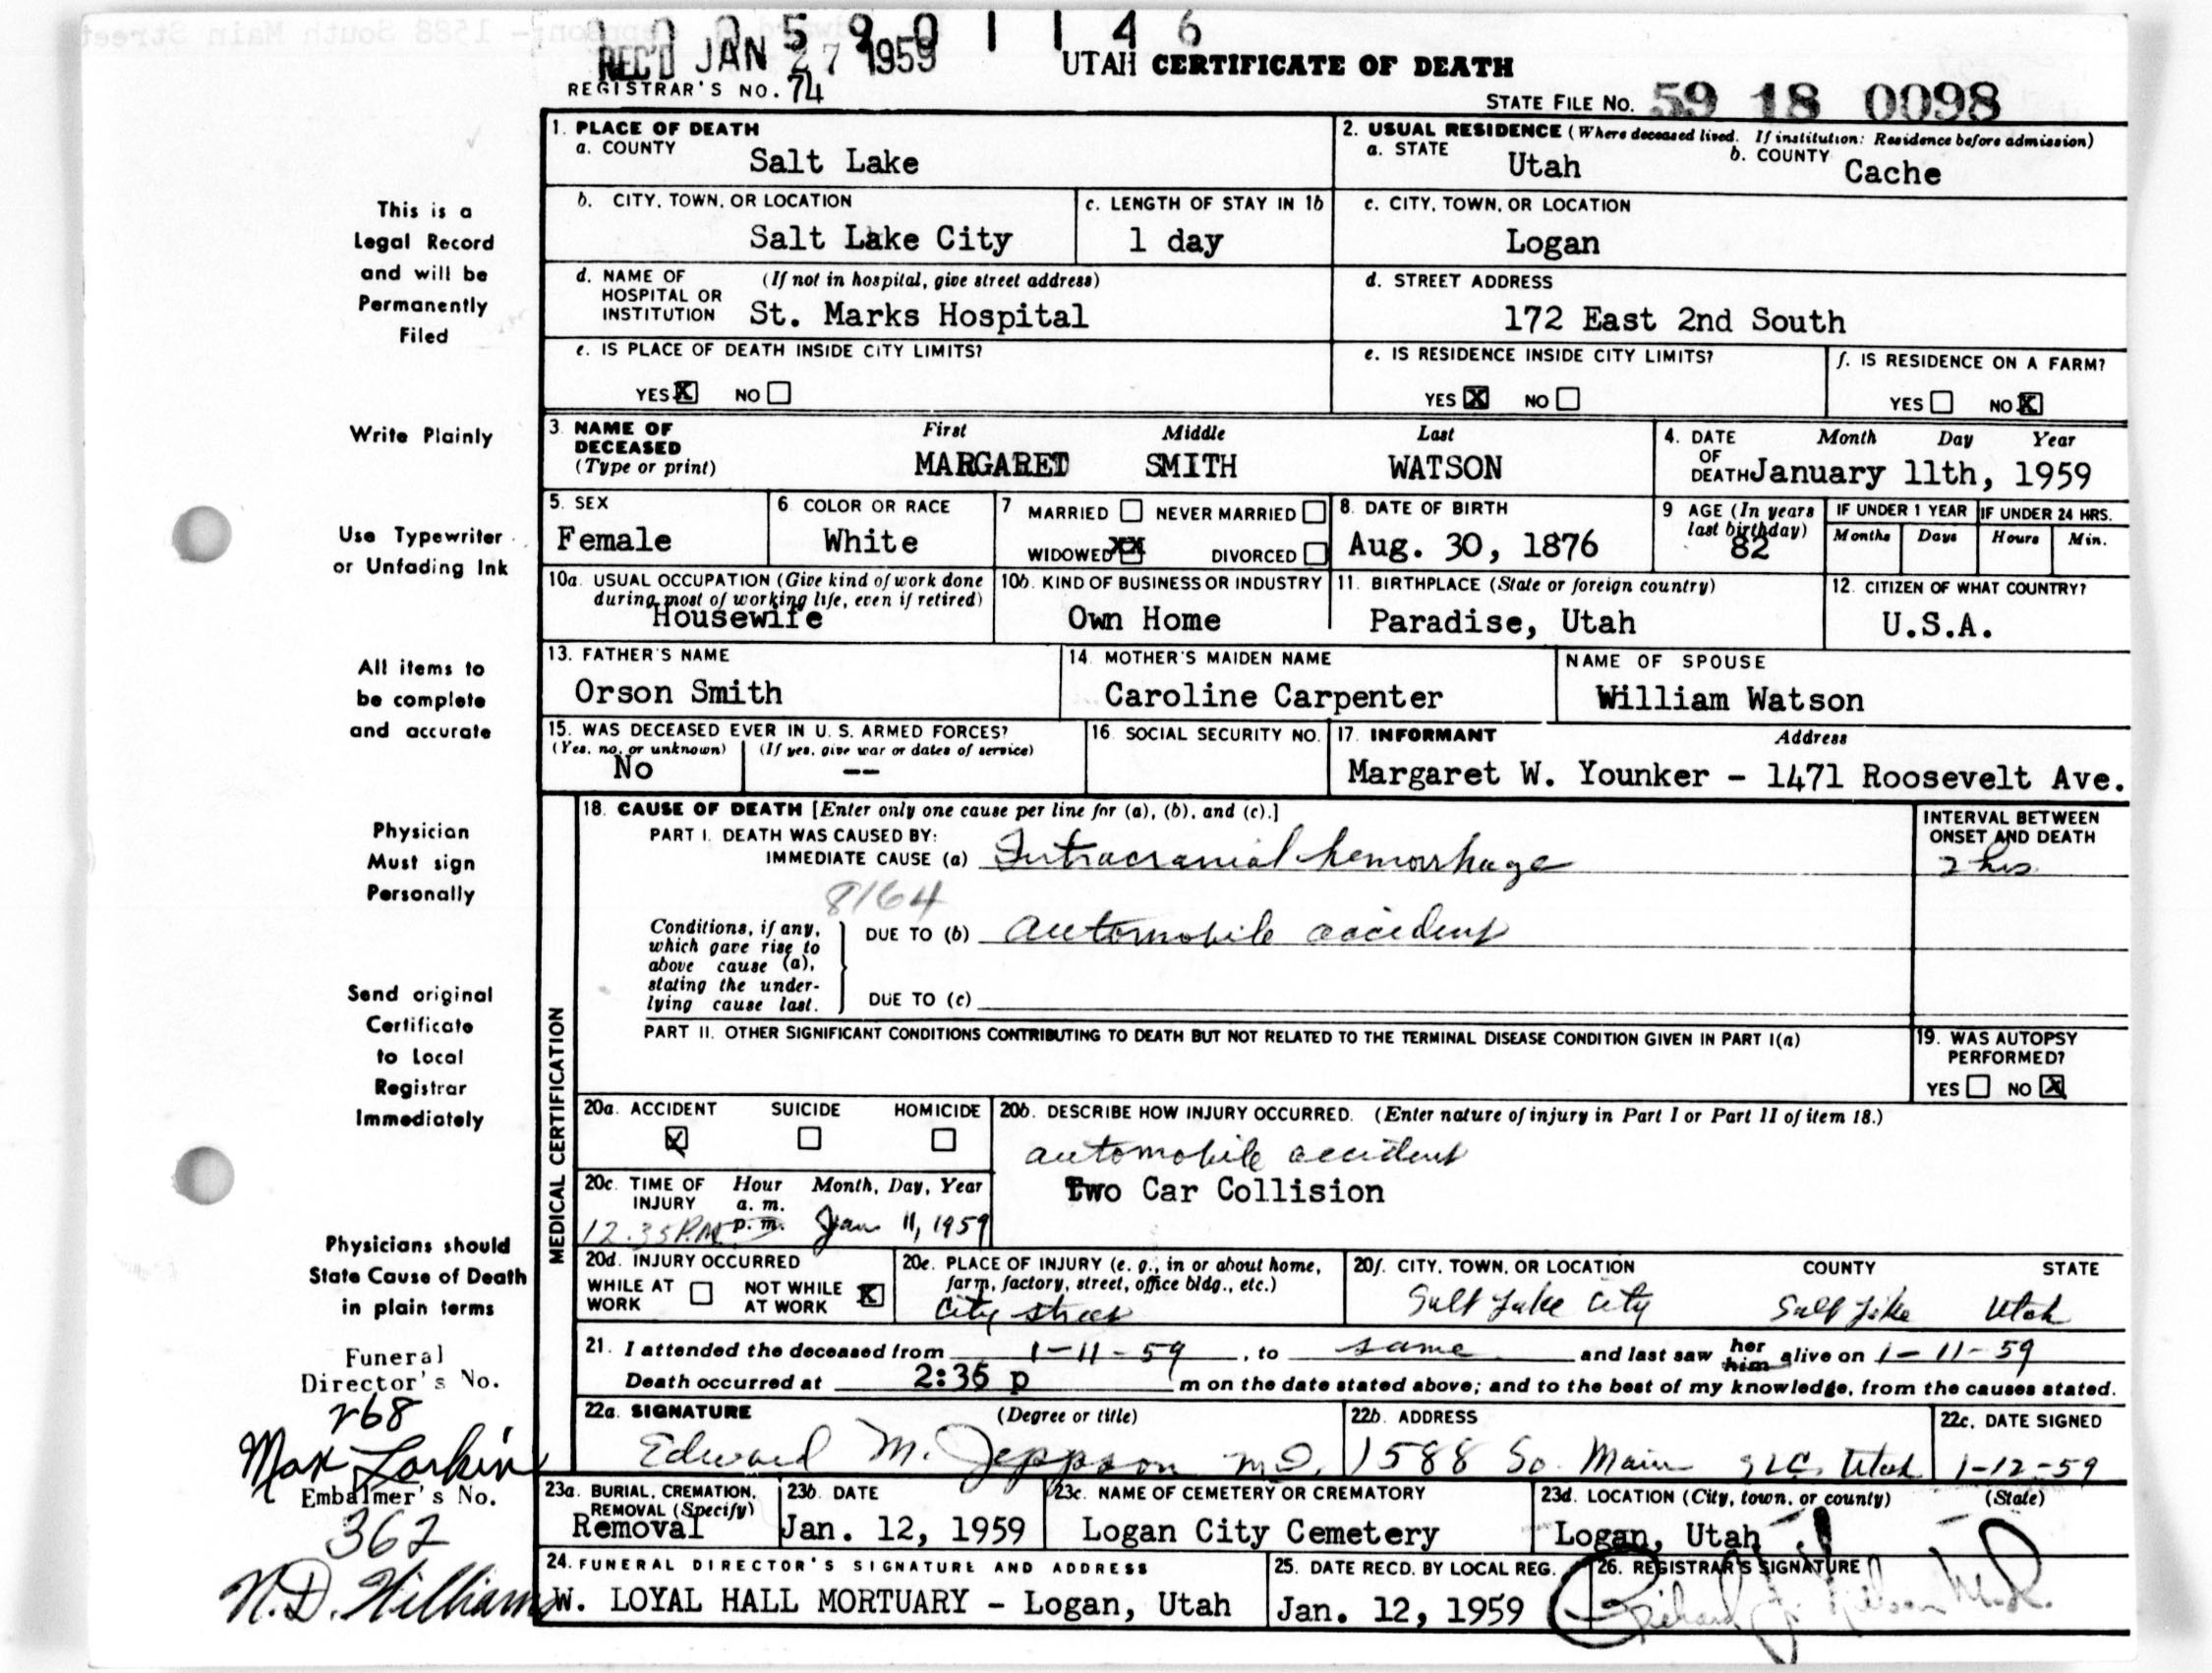 0 5 9 0 1 1 4 6
REC'D JAN 27 1959
UTAH CERTIFICATE OF DEATH
REGISTRAR'S NO. 74
STATE FILE NO. 59 18 0098
This is a
Legal Record
and will be
Permanently
Filed
Write Plainly
Use Typewriter
or Unfading Ink
All items to
be complete
and accurate
Physician
Must sign
Personally
Send original
Certificate
to Local
Registrar
Immediately
Physicians should
State Cause of Death
in plain terms
Funeral
Director's No.
268
Max Larkin
Embalmer's No.
362
N.D. Williams
1. PLACE OF DEATH
a. COUNTY Salt Lake
2. USUAL RESIDENCE (Where deceased lived. If institution: Residence before admission)
a. STATE Utah b. COUNTY Cache
b. CITY, TOWN, OR LOCATION Salt Lake City
c. LENGTH OF STAY IN 1b 1 day
c. CITY, TOWN, OR LOCATION Logan
d. NAME OF HOSPITAL OR INSTITUTION (If not in hospital, give street address) St. Marks Hospital
d. STREET ADDRESS 172 East 2nd South
e. IS PLACE OF DEATH INSIDE CITY LIMITS?
YES X NO
e. IS RESIDENCE INSIDE CITY LIMITS?
YES X NO
f. IS RESIDENCE ON A FARM?
YES NO X
3. NAME OF DECEASED (Type or print)
First Middle Last
MARGARET SMITH WATSON
4. DATE OF DEATH Month Day Year
January 11th, 1959
5. SEX Female
6 COLOR OR RACE White
7 MARRIED NEVER MARRIED
WIDOWED XX DIVORCED
8. DATE OF BIRTH Aug. 30, 1876
9 AGE (In years last birthday) 82
IF UNDER 1 YEAR IF UNDER 24 HRS.
Months Days Hours Min.
10a. USUAL OCCUPATION (Give kind of work done during most of working life, even if retired) Housewife
10b. KIND OF BUSINESS OR INDUSTRY Own Home
11. BIRTHPLACE (State or foreign country) Paradise, Utah
12. CITIZEN OF WHAT COUNTRY? U.S.A.
13. FATHER'S NAME Orson Smith
14. MOTHER'S MAIDEN NAME Caroline Carpenter
NAME OF SPOUSE William Watson
15. WAS DECEASED EVER IN U. S. ARMED FORCES?
(Yes, no, or unknown) (If yes, give war or dates of service)
No --
16. SOCIAL SECURITY NO.
17. INFORMANT Address
Margaret W. Younker - 1471 Roosevelt Ave.
MEDICAL CERTIFICATION
18. CAUSE OF DEATH [Enter only one cause per line for (a), (b), and (c).]
INTERVAL BETWEEN ONSET AND DEATH
PART I. DEATH WAS CAUSED BY:
IMMEDIATE CAUSE (a) Intracranial hemorrhage 2 hrs
8164
Conditions, if any, which gave rise to above cause (a), stating the underlying cause last.
DUE TO (b) automobile accident
DUE TO (c)
PART II. OTHER SIGNIFICANT CONDITIONS CONTRIBUTING TO DEATH BUT NOT RELATED TO THE TERMINAL DISEASE CONDITION GIVEN IN PART I(a)
19. WAS AUTOPSY PERFORMED?
YES NO X
20a. ACCIDENT SUICIDE HOMICIDE
X
20b. DESCRIBE HOW INJURY OCCURRED. (Enter nature of injury in Part I or Part II of item 18.)
automobile accident
Two Car Collision
20c. TIME OF INJURY Hour Month, Day, Year
a. m.
p. m.
12:35 P.M. Jan 11, 1959
20d. INJURY OCCURRED
WHILE AT WORK NOT WHILE AT WORK X
20e. PLACE OF INJURY (e. g., in or about home, farm, factory, street, office bldg., etc.)
City street
20f. CITY, TOWN, OR LOCATION COUNTY STATE
Salt Lake City Salt Lake Utah
21. I attended the deceased from 1-11-59, to same and last saw her him alive on 1-11-59
Death occurred at 2:35 p m on the date stated above; and to the best of my knowledge, from the causes stated.
22a. SIGNATURE (Degree or title)
Edward M. Jeppson M.D.
22b. ADDRESS
1588 So. Main SLC. Utah
22c. DATE SIGNED
1-12-59
23a. BURIAL, CREMATION, REMOVAL (Specify) Removal
23b. DATE Jan. 12, 1959
23c. NAME OF CEMETERY OR CREMATORY Logan City Cemetery
23d. LOCATION (City, town, or county) (State)
Logan, Utah
24. FUNERAL DIRECTOR'S SIGNATURE AND ADDRESS
W. LOYAL HALL MORTUARY - Logan, Utah
25. DATE RECD. BY LOCAL REG.
Jan. 12, 1959
26. REGISTRAR'S SIGNATURE
Richard J. Nelson M.D.